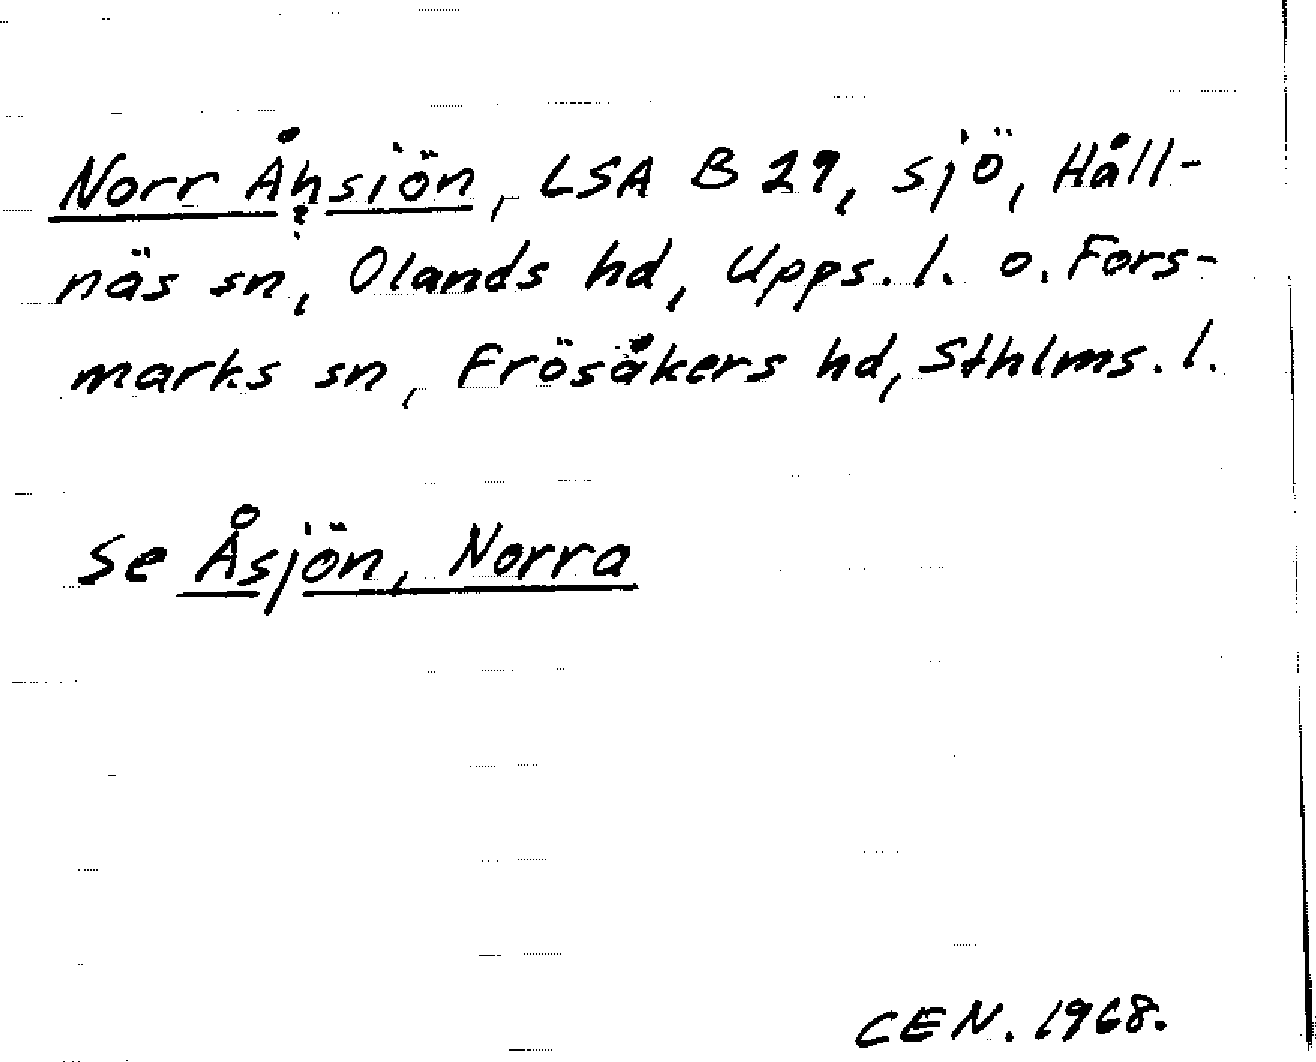 Norr Åhsiön, LSA B 29, sjö, Håll-
?
näs sn, Olands hd, Upps. l. o. Fors-
marks sn, Frösåkers hd, Sthlms. l.
Se Åsjön, Norra
CEN. 1968.